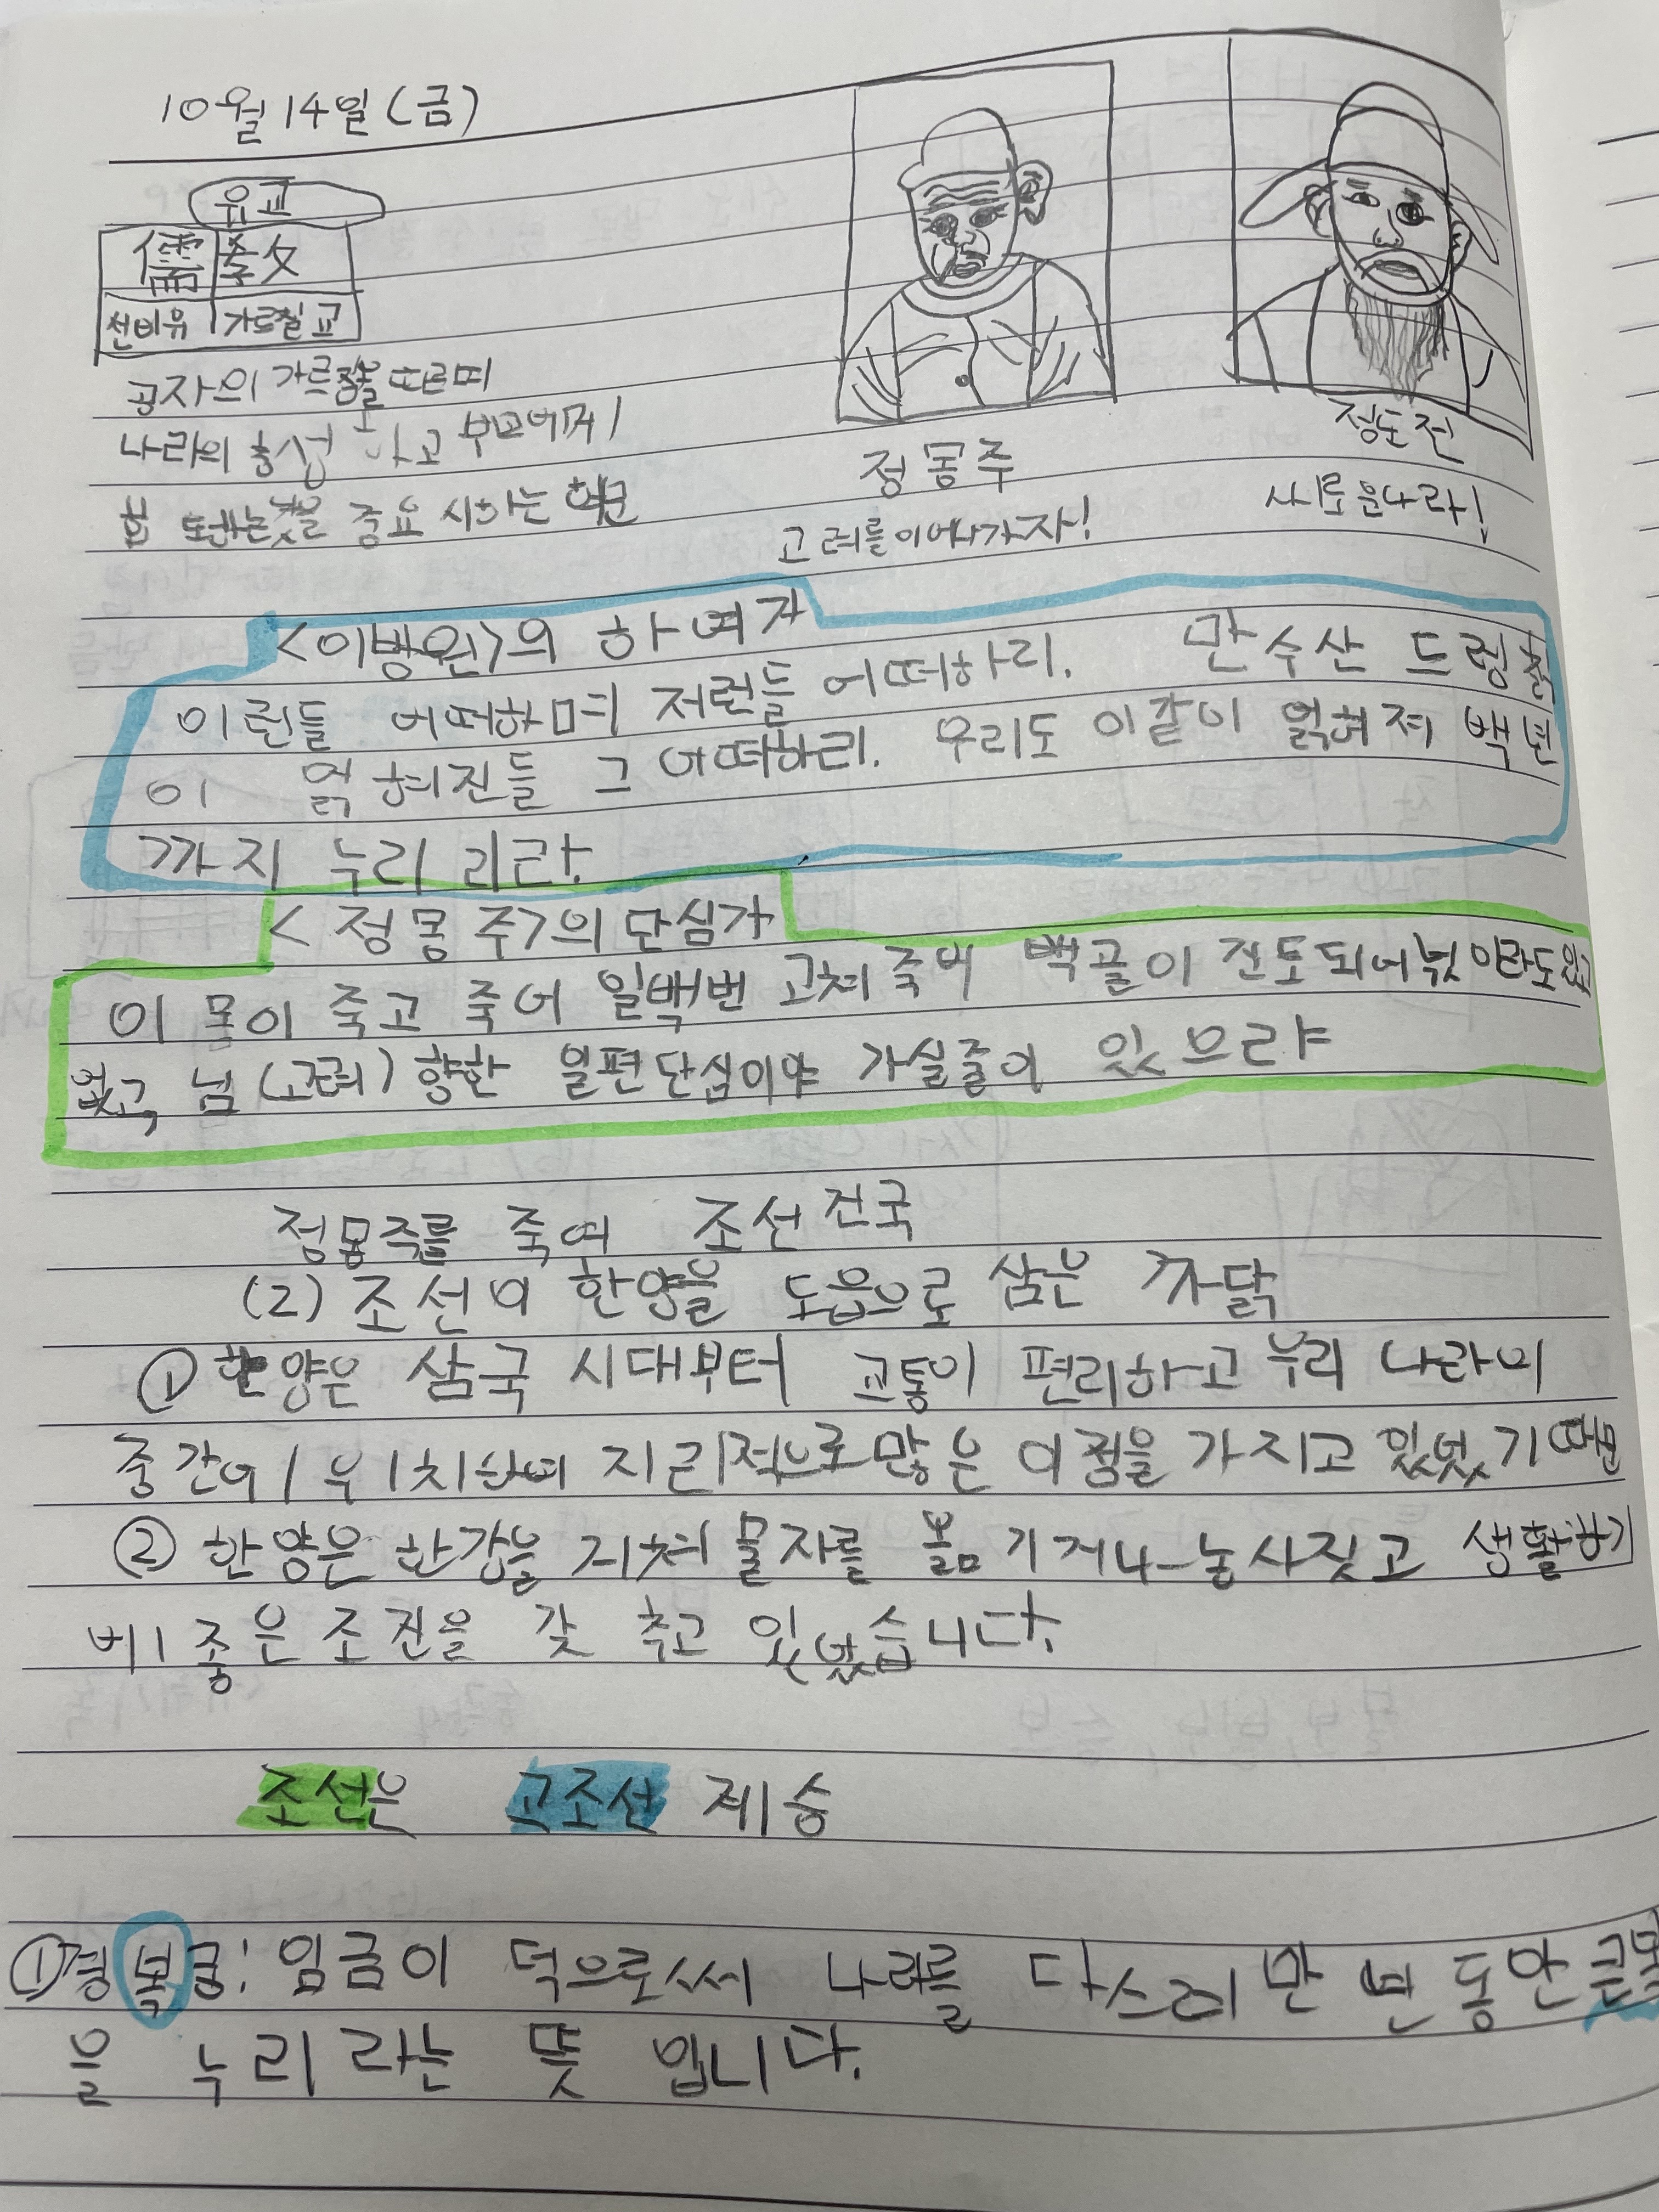 10월 14일 (금)
유교
儒 敎
선비 유 가르칠 교
공자의 가르침을 따르며
나라의 충성 하고 부모에게
효 도하는것을 중요 시하는 학문
정몽주
고려를 이어나가자!
정도전
새로운나라!
<이방원>의 하여가
이런들 어떠하며 저런들 어떠하리. 만수산 드렁칡
이 얽혀진들 그 어떠하리. 우리도 이같이 얽혀져 백년
까지 누리 리라.
<정몽주>의 단심가
이 몸이 죽고 죽어 일백번 고쳐 죽어 백골이 진토되어 넋이라도 있고
없고, 님 (고려) 향한 일편단심이야 가실줄이 있으랴
정몽주를 죽여 조선 건국
(2) 조선이 한양을 도읍으로 삼은 까닭
① 한양은 삼국 시대부터 교통이 편리하고 우리 나라의
중간에 위치하며 지리적으로 많은 이점을 가지고 있었기 때문
② 한양은 한강을 거쳐 물자를 옮기거나 농사짓고 생활하기
에 좋은 조건을 갖추고 있었습니다.
조선은 고조선 계승
① 경복궁: 임금이 덕으로써 나라를 다스려 만 년 동안 큰복
을 누리라는 뜻 입니다.